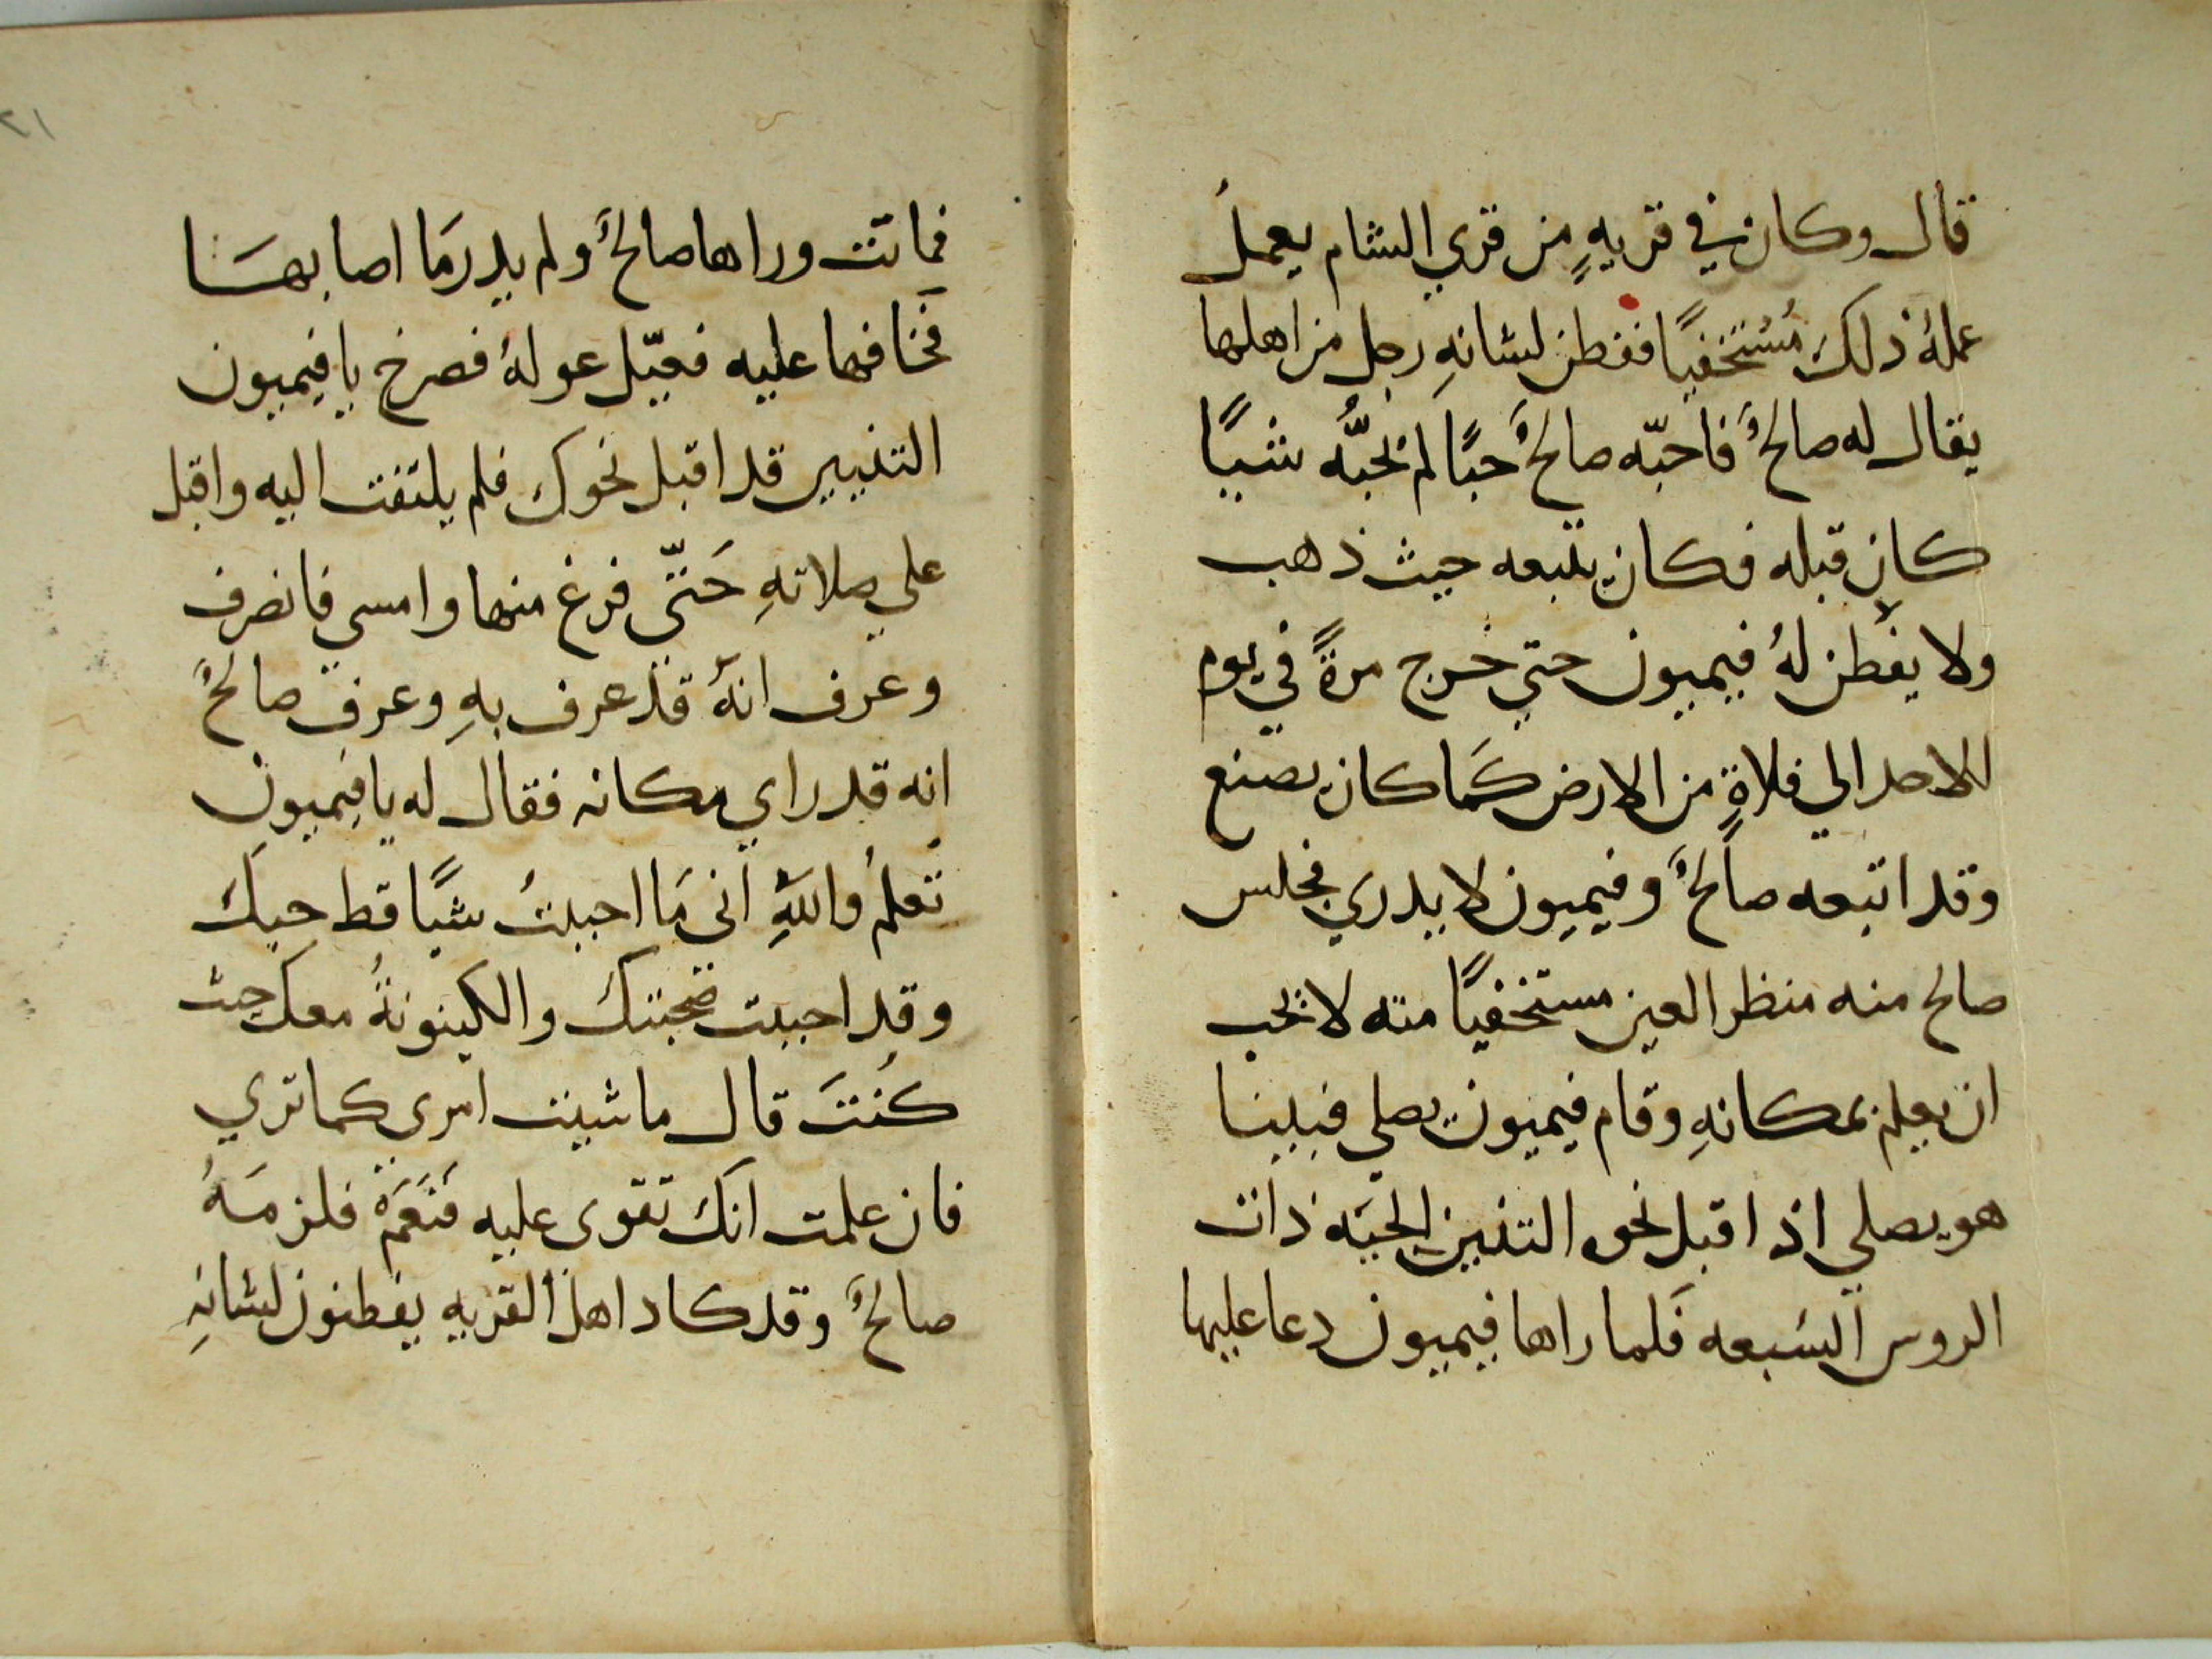 قال وكان في قريهٍ من قري الشام يعملُ
عملهُ ذلك مُسْتخفيًا ففطن لشانهِ رجل من اهلها
يقال له صالحٌ فاحبّه صالحٌ حبًا لم يحبُّه شيًا
كان قبله فكان يتبعه حيث ذهب
ولا يفطن لهُ فيميون حتي خرج مرةً في يوم
الاحد الي فلاةٍ من الارض كَما كان يصنع
وقد اتبعه صالحٌ وفيميون لا يدري فجلس
صالح منه منظر العين مستخفيًا منه لا يحب
ان يعلم بمكانهِ وقام فيميون يصلي فبينا
هو يصلي اذ اقبل نحو التنين الحيَه ذات
الروس السَبعه فَلما راها فيميون دعا عليها
فماتت وراها صالحٌ ولم يدر مَا اصابهَا
فَخافها عليه فعيّل عولهُ فصرخ يا فيميون
التنيين قد اقبل نحوك فلم يلتفت اليه واقبل
علي صلاتهِ حَتّى فرغ منها وامسي فانصرف
وعَرف انهُ قد عرف بهِ وعرف صالحٌ
انه قد راي مكانه فقال له يا فيميون
تَعلمُ واللهِ اَنى مَا احببتُ شيًا قط حبك
وقد احببت صحبتك والكينونةُ معك حيث
كُنتَ قال ما شيت امرى كما تري
فان علمت انَك تقوى عليه فَنَعَمْ فلزمَهُ
صالحٌ وقد كاد اهل القريه يفطنون لشانهِ
٢١